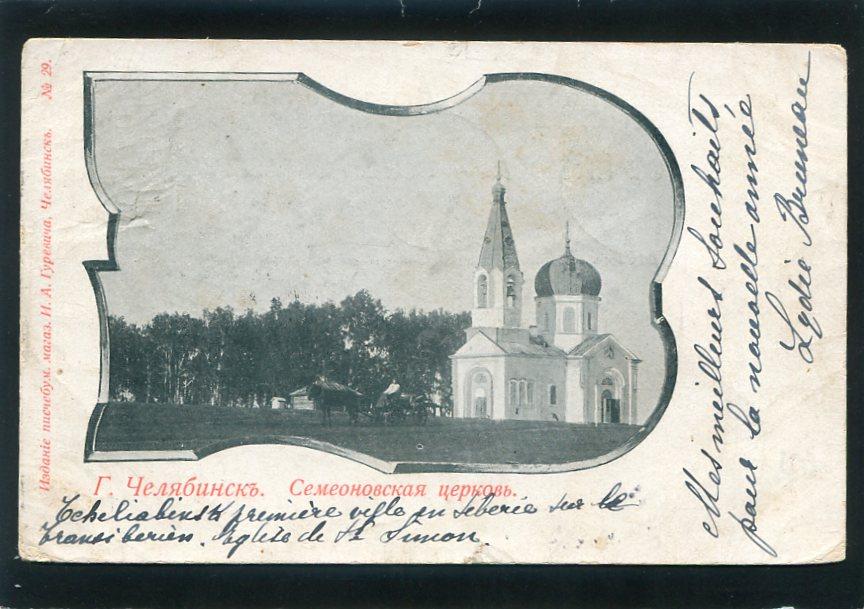 Изданіе писчебум. магаз. И. А. Гуревича, Челябинскъ. № 29.
Г. Челябинскъ. Семеоновская церковь.
Tcheliabinsk première ville en Siberie sur le
transiberien. Eglise de St Simon.
Mes meilleurs souhaits
pour la nouvelle année
Lydie Bruneau